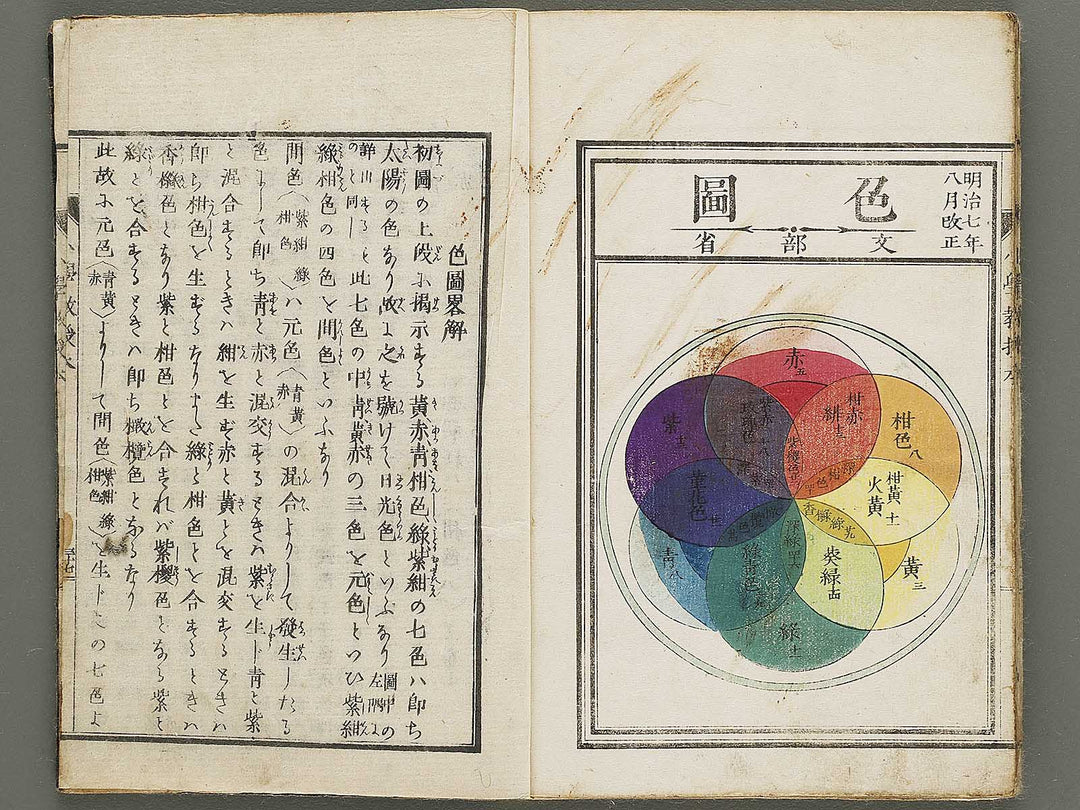 明治七年
八月改正
色圖
文部省
赤 五
柑赤
緋 三
柑色 八
柑黃 十一
火黃
黃 三
葵緑 十四
緑 十二
緑青色
青 八
菫花色
紫
紫赤 十八
玫瑰色
深緑
色圖畧解
初圖の上段に揭示する黃赤青柑色綠紫紺の七色ハ即ち
太陽の色なり故に之を號けて日光色といふなり
此七色の中青黃赤の三色を元色といひ紫紺
綠柑色の四色を間色といふなり
間色〈紫紺綠柑色〉ハ元色〈青黃赤〉の混合よりして發生したる
色にて即ち青と赤と混交するときハ紫を生じ青と紫
と混合するときハ紺を生ず赤と黃とを混交するときハ
即ち柑色を生ずるなりまた綠と柑色とを合するときハ
香櫞色となり紫と柑色とを合すれバ紫樱色となる紫と
綠とを合するときハ即ち橄欖色となるなり
此故に元色〈青黃赤〉よりして間色〈紫紺綠柑色〉を生じこの七色よ